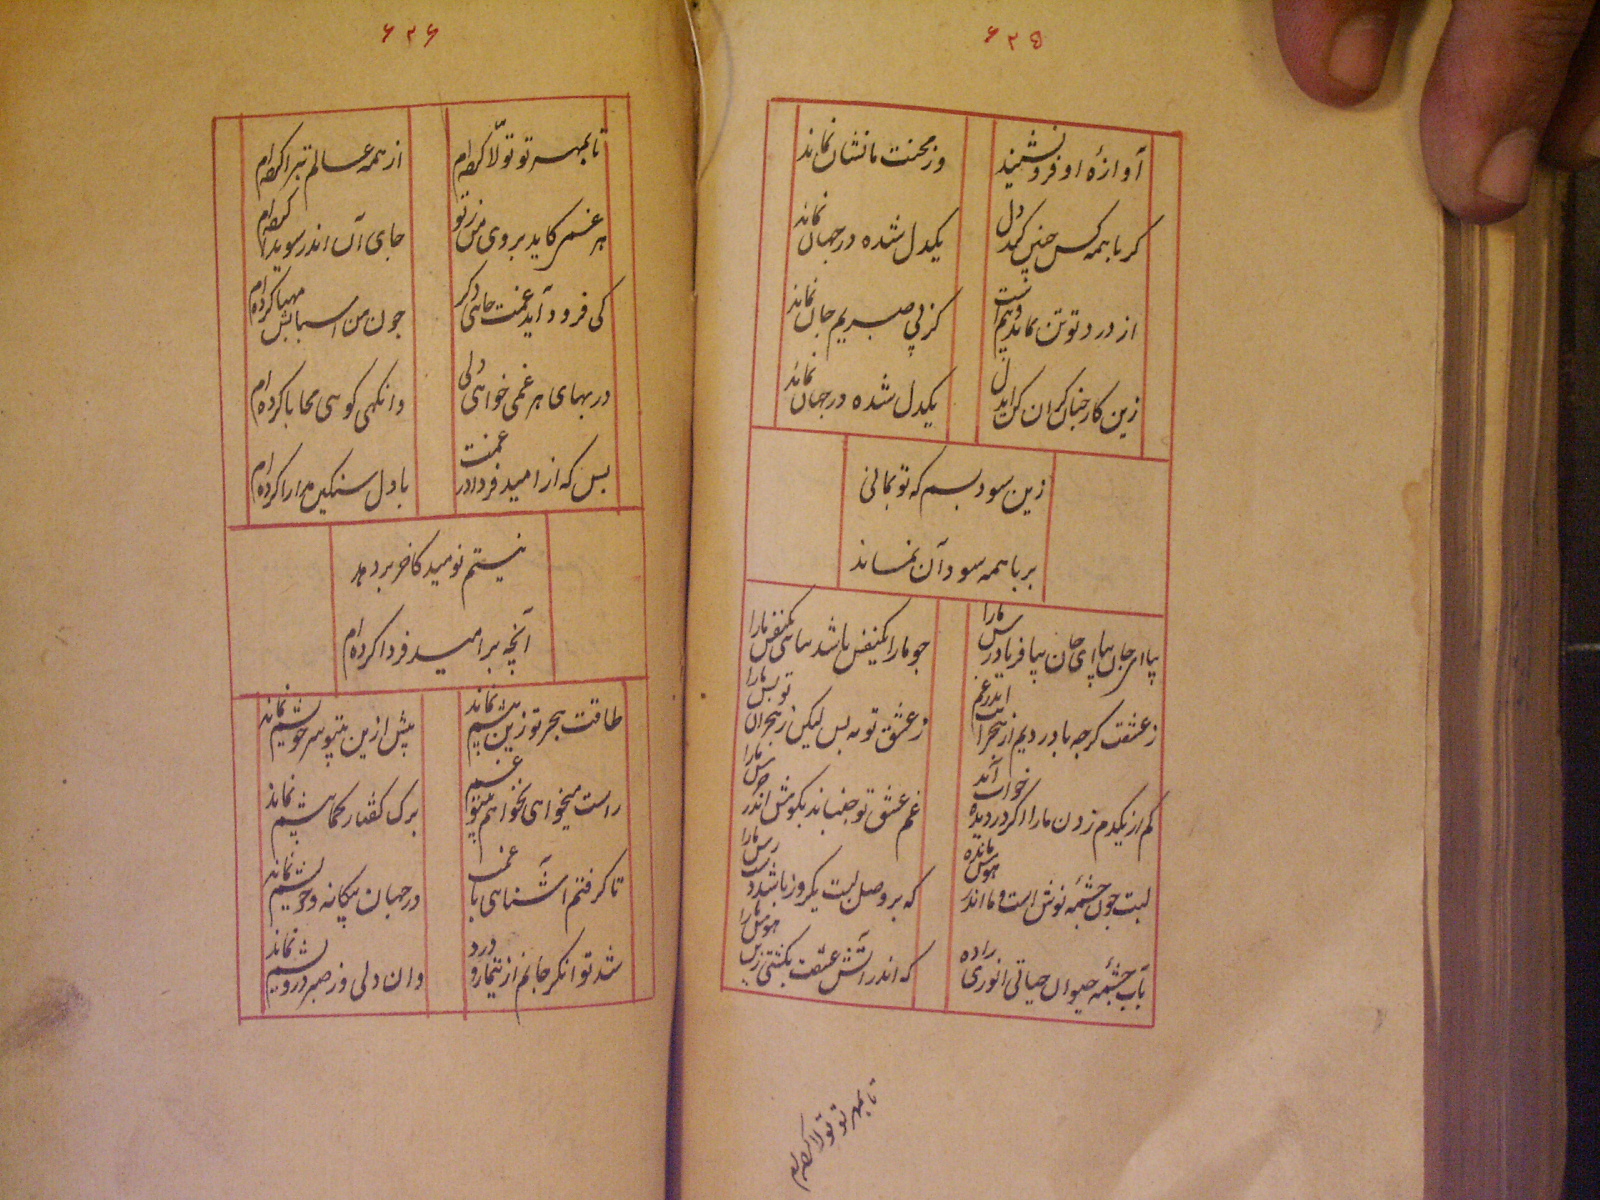 ۶۲۵
آوازهٔ او فرو نشیند
وز محنت ما نشان نماند
کر با همه کس چنین کند دل
یکدل شده در جهان نماند
از درد تو تن نماند و بیم است
کز بی صبریم جان نماند
زین کار چنان کران کن ای دل
یکدل شده در جهان نماند
زین سود بسم که تو بمانی
بر با همه سود آن نماند
بیا ای جان بیا ای جان بیا فریاد رس ما را
جو ما را یکنفس باشد نباشی یکنفس ما را
ز عشقت کرجه با دردیم از هجرانت اندر غم
ز عشق تو نه بس لیکن ز هجران تو بس ما را
کم از یکدم زدن ما را اکر در دیده خواب آید
غم عشق تو جنباند بکوش اندر جرس ما را
لبت جون جشمه نوش است و ما اندر هوس مانده
که بر وصل لبت یکروز باشد دسترس ما را
بآب جشمهٔ حیوان حیاتی انوری را ده
که اندر آتش عشقت بکشتی زین هوس ما را
تا بمهر تو تولا کرده‌ام
۶۲۶
تا بمهر تو تولّا کرده‌ام
از همه عالم تبرا کرده‌ام
هر غمی کاید بروی من ز تو
جای آن اندر سویدا کرده‌ام
کی فرود آید غمت جائی دکر
جون من اسبابش مهیا کرده‌ام
در بهای هر غمی خواهی دلی
وانکهی کوئی محابا کرده‌ام
بس که از امید فردا در غمت
با دل سنکین مدارا کرده‌ام
نیستم نومید کاخر بر دهد
آنچه بر امید فردا کرده‌ام
طاقت هجر تو زین بیشم نماند
بیش ازین بیتو سر خویشم نماند
راست میخواهی نخواهم بیتو غم
برک کفتار کما بیشم نماند
تا کرفتم آشنائی با غمت
در جهان بیکانه و خویشم نماند
شد توانکر جانم از تیمار و درد
وان دلی وز صبر درویشم نماند